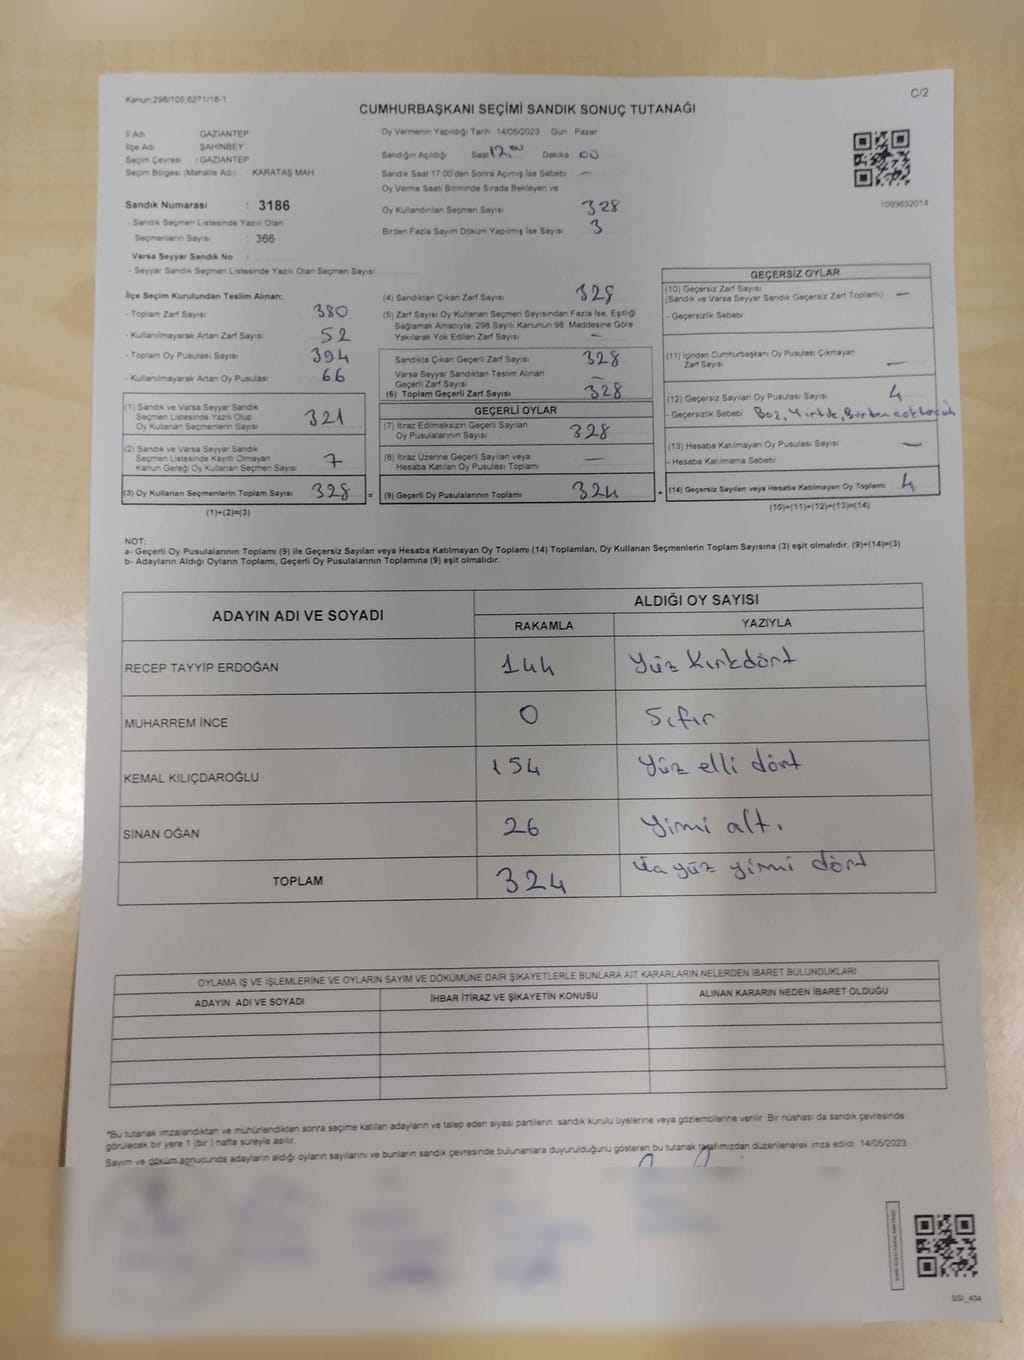 Kanun;298/105,6271/18-1
C/2
CUMHURBAŞKANI SEÇİMİ SANDIK SONUÇ TUTANAĞI
İl Adı GAZİANTEP
İlçe Adı ŞAHİNBEY
Seçim Çevresi : GAZİANTEP
Seçim Bölgesi (Mahalle Adı) KARATAŞ MAH
Sandık Numarası : 3186
- Sandık Seçmen Listesinde Yazılı Olan
Seçmenlerin Sayısı : 366
Varsa Seyyar Sandık No :
- Seyyar Sandık Seçmen Listesinde Yazılı Olan Seçmen Sayısı
Oy Vermenin Yapıldığı Tarih 14/05/2023 Gün Pazar
Sandığın Açıldığı Saat 17.00 Dakika 00
Sandık Saat 17:00'den Sonra Açılmış İse Sebebi —
Oy Verme Saati Bitiminde Sırada Bekleyen ve
Oy Kullandırılan Seçmen Sayısı 328
Birden Fazla Sayım Döküm Yapılmış İse Sayısı 3
1099632014
İlçe Seçim Kurulundan Teslim Alınan;
- Toplam Zarf Sayısı 380
- Kullanılmayarak Artan Zarf Sayısı 52
- Toplam Oy Pusulası Sayısı 394
- Kullanılmayarak Artan Oy Pusulası 66
(1) Sandık ve Varsa Seyyar Sandık
Seçmen Listesinde Yazılı Olup
Oy Kullanan Seçmenlerin Sayısı 321
(2) Sandık ve Varsa Seyyar Sandık
Seçmen Listesinde Kayıtlı Olmayan
Kanun Gereği Oy Kullanan Seçmen Sayısı 7
(3) Oy Kullanan Seçmenlerin Toplam Sayısı 328 =
(1)+(2)=(3)
(4) Sandıktan Çıkan Zarf Sayısı 328
(5) Zarf Sayısı Oy Kullanan Seçmen Sayısından Fazla İse, Eşitliği
Sağlamak Amacıyla; 298 Sayılı Kanunun 98. Maddesine Göre
Yakılarak Yok Edilen Zarf Sayısı —
Sandıkta Çıkan Geçerli Zarf Sayısı 328
Varsa Seyyar Sandıktan Teslim Alınan
Geçerli Zarf Sayısı —
(6) Toplam Geçerli Zarf Sayısı 328
GEÇERLİ OYLAR
(7) İtiraz Edilmeksizin Geçerli Sayılan
Oy Pusulalarının Sayısı 328
(8) İtiraz Üzerine Geçerli Sayılan veya
Hesaba Katılan Oy Pusulası Toplamı —
(9) Geçerli Oy Pusulalarının Toplamı 324 +
GEÇERSİZ OYLAR
(10) Geçersiz Zarf Sayısı
(Sandık ve Varsa Seyyar Sandık Geçersiz Zarf Toplamı) —
- Geçersizlik Sebebi
(11) İçinden Cumhurbaşkanı Oy Pusulası Çıkmayan
Zarf Sayısı —
(12) Geçersiz Sayılan Oy Pusulası Sayısı 4
- Geçersizlik Sebebi Boş, Yırtık,
(13) Hesaba Katılmayan Oy Pusulası Sayısı —
- Hesaba Katılmama Sebebi
(14) Geçersiz Sayılan veya Hesaba Katılmayan Oy Toplamı 4
(10)+(11)+(12)+(13)=(14)
NOT:
a- Geçerli Oy Pusulalarının Toplamı (9) ile Geçersiz Sayılan veya Hesaba Katılmayan Oy Toplamı (14) Toplamları, Oy Kullanan Seçmenlerin Toplam Sayısına (3) eşit olmalıdır. (9)+(14)=(3)
b- Adayların Aldığı Oyların Toplamı, Geçerli Oy Pusulalarının Toplamına (9) eşit olmalıdır.
ADAYIN ADI VE SOYADI
ALDIĞI OY SAYISI
RAKAMLA YAZIYLA
RECEP TAYYİP ERDOĞAN 144 Yüz Kırkdört
MUHARREM İNCE 0 Sıfır
KEMAL KILIÇDAROĞLU 154 Yüz elli dört
SİNAN OĞAN 26 Yimi altı
TOPLAM 324 yüz yirmi dört
OYLAMA İŞ VE İŞLEMLERİNE VE OYLARIN SAYIM VE DÖKÜMÜNE DAİR ŞİKAYETLERLE BUNLARA AİT KARARLARIN NELERDEN İBARET BULUNDUKLARI
ADAYIN ADI VE SOYADI İHBAR İTİRAZ VE ŞİKAYETİN KONUSU ALINAN KARARIN NEDEN İBARET OLDUĞU
*Bu tutanak imzalandıktan ve mühürlendikten sonra seçime katılan adayların ve talep eden siyasi partilerin sandık kurulu üyelerine veya gözlemcilerine verilir. Bir nüshası da sandık çevresinde
görülecek bir yere 1 (bir ) hafta süreyle asılır.
Sayım ve döküm sonucunda adayların aldığı oyların sayılarını ve bunların sandık çevresinde bulunanlara duyurulduğunu gösteren bu tutanak tarafımızdan düzenlenerek imza edildi. 14/05/2023
SSI_404